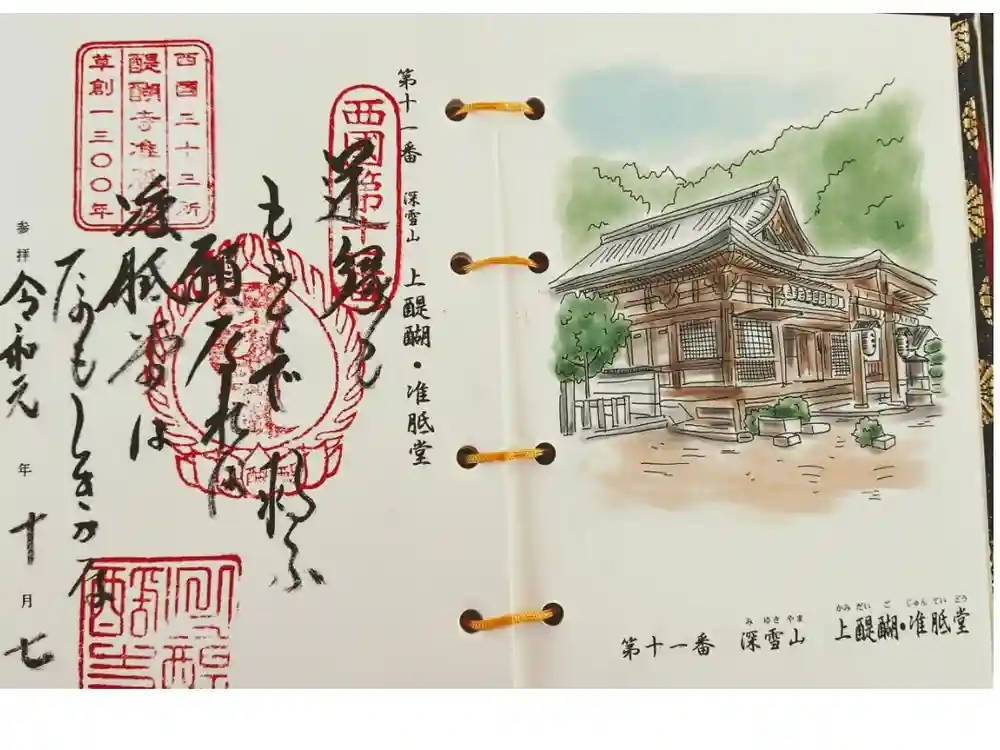 第十一番 深雪山 上醍醐・准胝堂
西國第十
逆縁も
もらさで救ふ
願なれば
准胝堂は
たのもしきかな
西国三十三所
醍醐寺准胝堂
草創一三〇〇年
参拝 令和元年十月七
みゆきやま かみだいご じゅんていどう
第十一番 深雪山 上醍醐・准胝堂